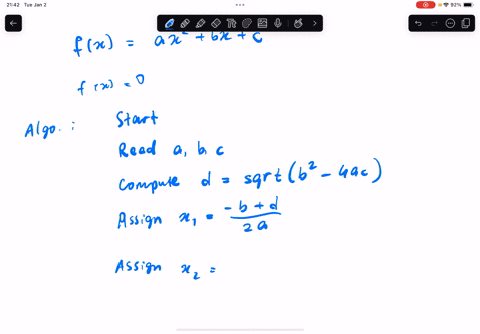 21:42 Tue Jan 2
92%
f(x) = ax² + bx + c
f(x) = 0
Algo. : Start
Read a, b, c
Compute d = sqrt(b² - 4ac)
Assign x₁ = (-b + d)/2a
Assign x₂ =